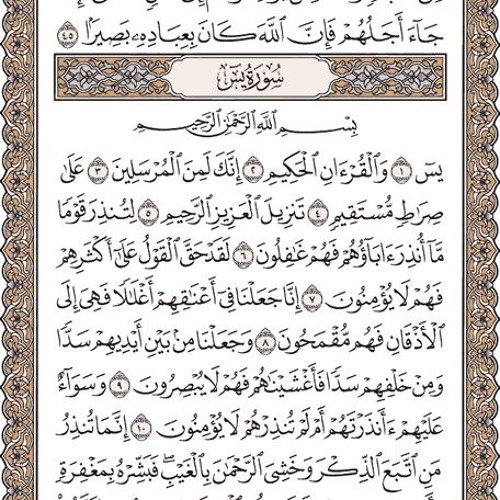 جَآءَ أَجَلُهُمْ فَإِنَّ ٱللَّهَ كَانَ بِعِبَادِهِۦ بَصِيرًۢا ٤٥
سُورَةُ يسٓ
بِسْمِ ٱللَّهِ ٱلرَّحْمَٰنِ ٱلرَّحِيمِ
يسٓ ١ وَٱلْقُرْءَانِ ٱلْحَكِيمِ ٢ إِنَّكَ لَمِنَ ٱلْمُرْسَلِينَ ٣ عَلَىٰ
صِرَٰطٍ مُّسْتَقِيمٍ ٤ تَنزِيلَ ٱلْعَزِيزِ ٱلرَّحِيمِ ٥ لِتُنذِرَ قَوْمًا
مَّآ أُنذِرَ ءَابَآؤُهُمْ فَهُمْ غَٰفِلُونَ ٦ لَقَدْ حَقَّ ٱلْقَوْلُ عَلَىٰٓ أَكْثَرِهِمْ
فَهُمْ لَا يُؤْمِنُونَ ٧ إِنَّا جَعَلْنَا فِىٓ أَعْنَٰقِهِمْ أَغْلَٰلًا فَهِىَ إِلَى
ٱلْأَذْقَانِ فَهُم مُّقْمَحُونَ ٨ وَجَعَلْنَا مِنۢ بَيْنِ أَيْدِيهِمْ سَدًّا
وَمِنْ خَلْفِهِمْ سَدًّا فَأَغْشَيْنَٰهُمْ فَهُمْ لَا يُبْصِرُونَ ٩ وَسَوَآءٌ
عَلَيْهِمْ ءَأَنذَرْتَهُمْ أَمْ لَمْ تُنذِرْهُمْ لَا يُؤْمِنُونَ ١٠ إِنَّمَا تُنذِرُ
مَنِ ٱتَّبَعَ ٱلذِّكْرَ وَخَشِىَ ٱلرَّحْمَٰنَ بِٱلْغَيْبِ ۖ فَبَشِّرْهُ بِمَغْفِرَةٍ